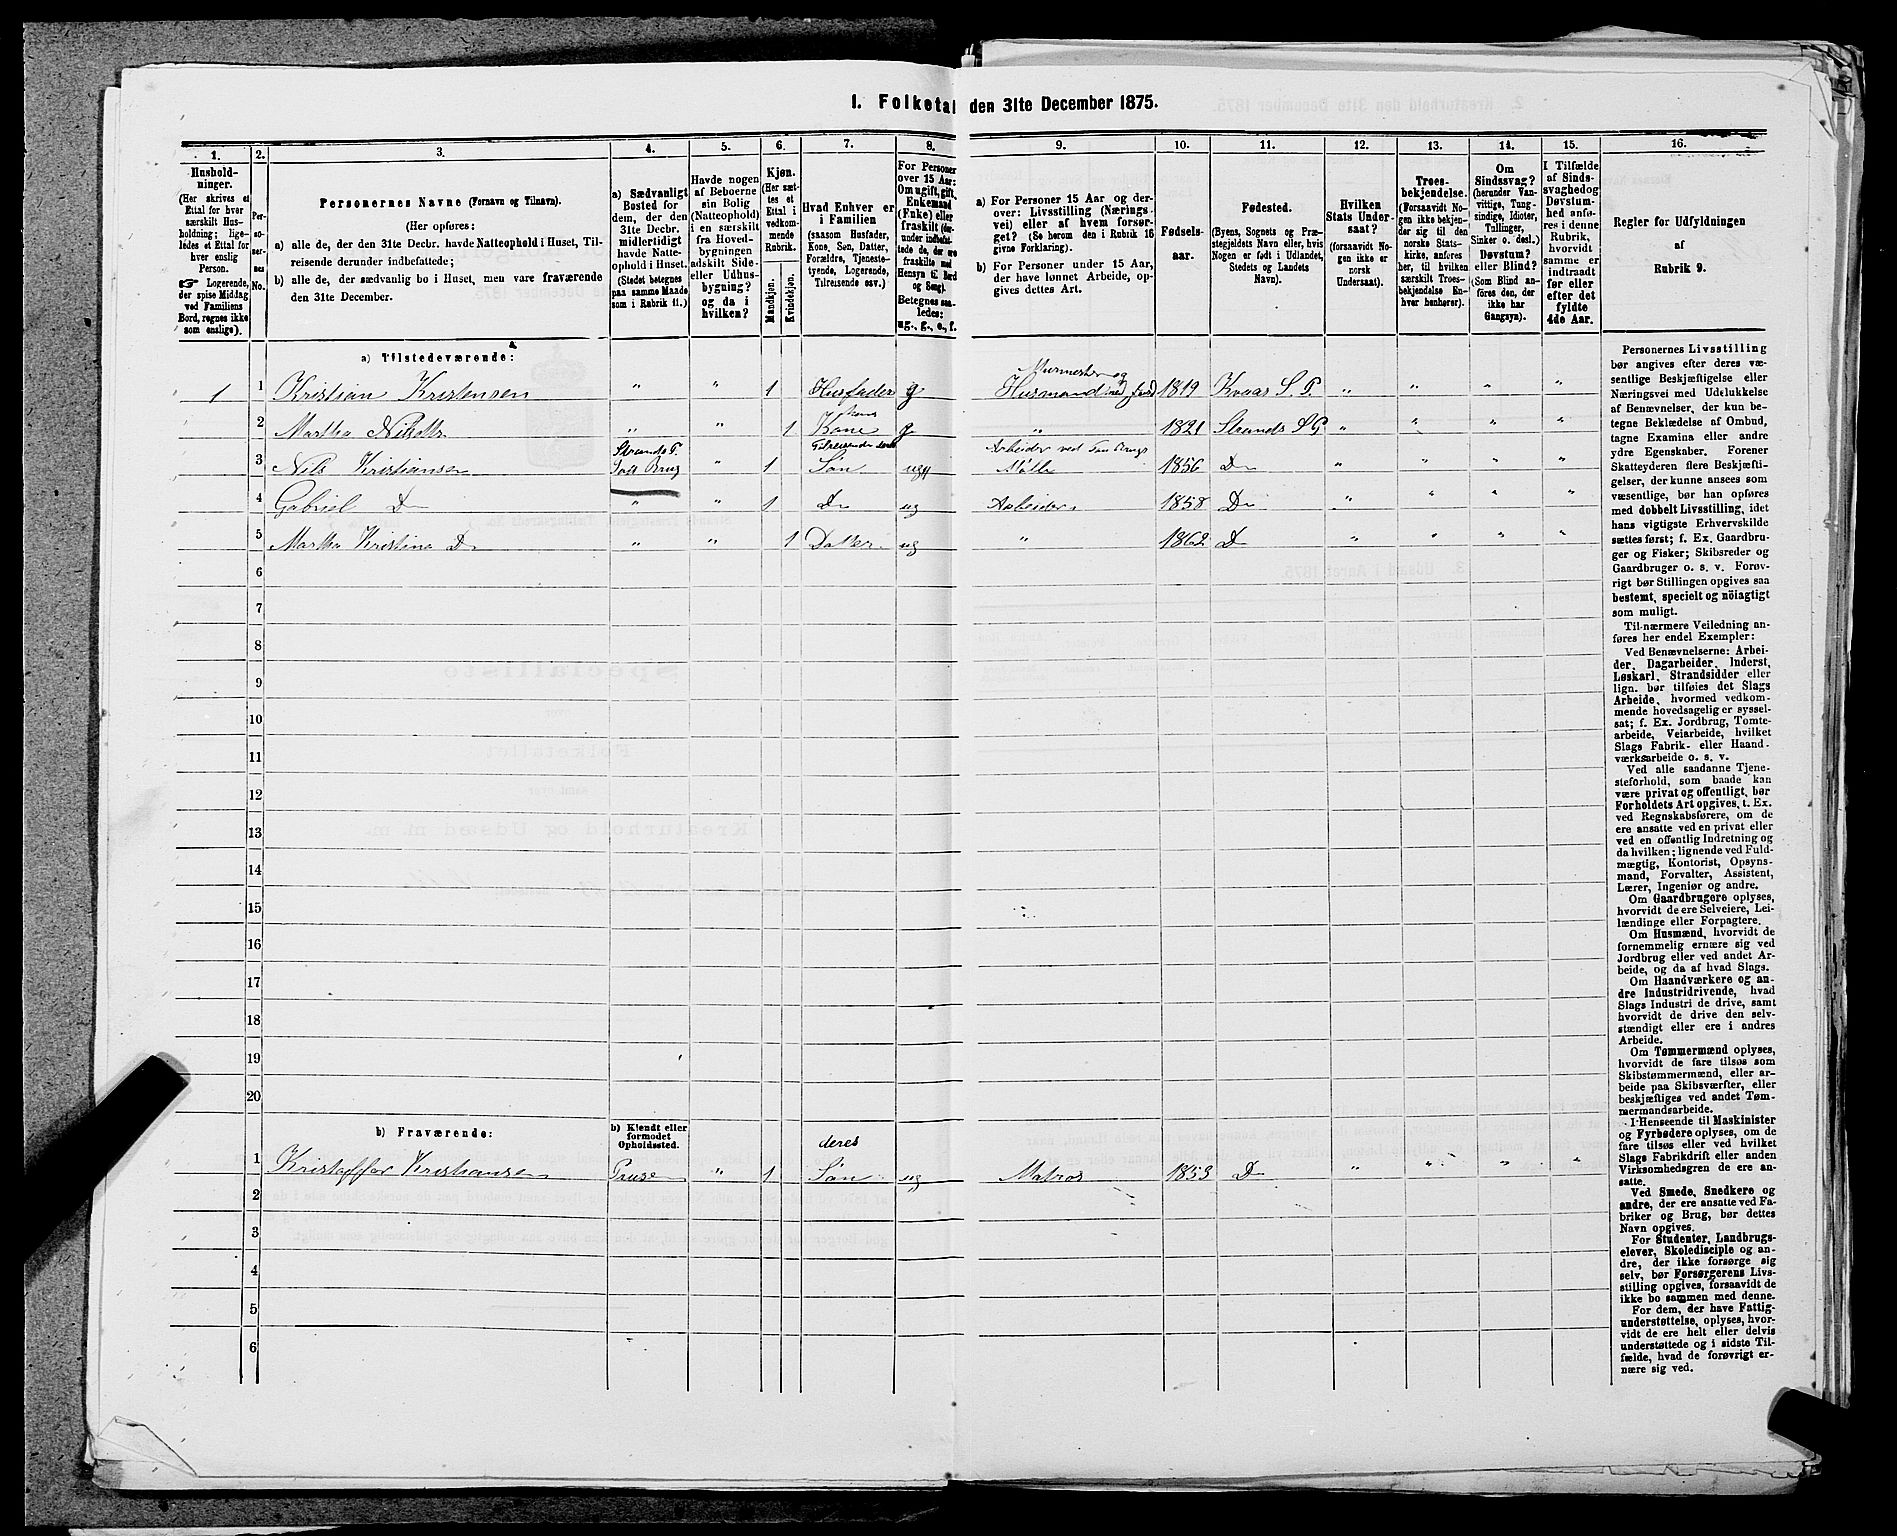 1. Folketal den 31te December 1875.
1.
Hushold-
ninger.
(Her skrives et
Ettal for hver
særskilt Hus-
holdning; lige-
ledes et Ettal for
hver enslig
Person.
☞ Logerende,
der spise Middag
ved Familiens
Bord, regnes ikke
som enslige).
2.
Per-
so-
ner-
nes
No.
3.
Personernes Navne (Fornavn og Tilnavn).
(Her opføres:
a) alle de, der den 31te Decbr. havde Natteophold i Huset, Til-
reisende derunder indbefattede;
b) alle de, der sædvanlig bo i Huset, men vare fraværende
den 31te December.
4.
a) Sædvanligt
Bosted for
dem, der den
31te Decbr.
midlertidigt
havde Natte-
ophold i Huset.
(Stedet betegnes
paa samme Maade
som i Rubrik 11.)
5.
Havde nogen
af Beboerne
sin Bolig
(Natteophold)
i en særskilt
fra Hoved-
bygningen
adskilt Side-
eller Udhus-
bygning?
og da i
hvilken?
6.
Kjøn.
(Her sæt-
tes et
Ettal i
vedkom-
mende
Rubrik.
Mandkjøn.
Kvindekjøn.
7.
Hvad Enhver er
i Familien
(saasom Husfader,
Kone, Søn, Datter,
Forældre, Tjeneste-
tyende, Logerende,
Tilreisende osv.)
8.
For Personer
over 15 Aar:
Om ugift, gift,
Enkemand
(Enke) eller
fraskilt (der-
under indbefat-
tede de, der ere
fraskilte med
Hensyn til Bord
og Seng).
Betegnes saa-
ledes:
ug., g., e., f.
9.
a) For Personer 15 Aar og der-
over: Livsstilling (Nærings-
vei) eller af hvem forsør-
get? (Se herom den i Rubrik 16
givne Forklaring).
b) For Personer under 15 Aar,
der have lønnet Arbeide, op-
gives dettes Art.
10.
Fødsels-
aar.
11.
Fødested.
(Byens, Sognets og Præ-
stegjeldets Navn eller, hvis
Nogen er født i Udlandet,
Stedets og Landets
Navn).
12.
Hvilken
Stats Under-
saat?
(forsaavidt No-
gen ikke er
norsk
Undersaat).
13.
Troes-
bekjendelse.
(Forsaavidt No-
gen ikke bekjen-
der sig til den
norske Stats-
kirke, anføres
her, til hvilken
Troes-
bekjendelse En-
hver henhører).
14.
Om
Sindssvag?
(herunder Van-
vittige, Tung-
sindige, Idioter,
Tullinger,
Sinker o. desl.)
Døvstum?
eller Blind?
(Som Blind an-
føres den, der
ikke har
Gangsyn).
15.
I Tilfælde
af Sinds-
svaghed og
Døvstum-
hed anfø-
res i denne
Rubrik,
hvorvidt
samme er
indtraadt
før eller
efter det
fyldte
4de Aar.
16.
Regler for Udfyldningen
af
Rubrik 9.
a) Tilstedeværende:
1 1 Kristian Kristensen " " 1 Husfader g Murmester og Husmand med Jord 1819 Kvaas S. P. " " " "
2 Martha Nilsdtr " " 1 hans Kone g " 1821 Strands S P. " " " "
3 Nils Kristiansen Strands P. " 1 Tilreisende deres Søn ug Arbeider ved Mølle 1856 Do " " " "
4 Gabriel Do " " 1 Do ug Arbeider 1858 Do " " " "
5 Martha Kristina Do " " 1 Datter ug " 1862 Do " " " "
6
7
8
9
10
11
12
13
14
15
16
17
18
19
20
b) Fraværende:
b) Kjendt eller
formodet
Opholdssted.
1 Kristoffer Kristiansen " 1 deres Søn ug Matros 1853 Do " " " "
2
3
4
5
6
Personernes Livsstilling
bør angives efter deres væ-
sentlige Beskjæftigelse eller
Næringsvei med Udelukkelse
af Benævnelser, der kun be-
tegne Beklædelse af Ombud,
tagne Examina eller andre
ydre Egenskaber. Forener
Skatteyderen flere Beskjæfti-
gelser, der kunne ansees som
væsentlige, bør han opføres
med dobbelt Livsstilling, idet
hans vigtigste Erhvervskilde
sættes først; f. Ex. Gaardbru-
ger og Fisker; Skibsreder og
Gaardbruger o. s. v. Forøv-
rigt bør Stillingen opgives saa
bestemt, specielt og nöiagtigt
som muligt.
Til nærmere Veiledning an-
føres her endel Exempler:
Ved Benævnelserne: Arbei-
der, Dagarbeider, Inderst,
Løskarl, Strandsidder eller
lign. bør tilføies det Slags
Arbeide, hvormed vedkom-
mende hovedsagelig er syssel-
sat; f. Ex. Jordbrug, Tomte-
arbeide, Veiarbeide, hvilket
Slags Fabrik- eller Haand-
værksarbeide o. s. v.
Ved alle saadanne Tjene-
steforhold, som baade kan
være privat og offentligt, bør
Forholdets Art opgives, t. Ex.
ved Regnskabsførere, om de
ere ansatte ved en privat eller
ved en offentlig Indretning og
da hvilken; lignende ved Fuld-
mægtig, Kontorist, Opsyns-
mand, Forvalter, Assistent,
Lærer, Ingeniør og andre.
Om Gaardbrugere oplyses,
hvorvidt de ere Selveiere, Lei-
lændinge eller Forpagtere.
Om Husmænd, hvorvidt de
fornemmelig ernære sig ved
Jordbrug eller ved andet Ar-
beide, og da af hvad Slags.
Om Haandværkere og an-
dre Industridrivende, hvad
Slags Industri de drive, samt
hvorvidt de drive den selv-
stændigt eller ere i andres
Arbeide.
Om Tømmermænd oplyses,
hvorvidt de fare tilsøs som
Skibstømmermænd, eller ar-
beide paa Skibsværfter, eller
beskjæftiges ved andet Tøm-
mermandsarbeide.
I Henseende til Maskinister
og Fyrbødere oplyses, om de
fare tilsøs eller ved hvilket
Slags Fabrikdrift eller anden
Virksomhedsgren de ere an-
satte.
Ved Smede, Snedkere og
andre, der ere ansatte ved Fa-
briker og Brug, bør dettes
Navn opgives.
For Studenter, Landbrugs-
elever, Skoledisciple og an-
dre, der ikke forsørge sig
selv, bør Forsørgerens Livs-
stilling opgives, forsaavidt de
ikke bo sammen med denne.
For dem, der have Fattig-
understøttelse, oplyses, hvor-
vidt de ere helt eller delvis
understøttede og i sidste Til-
fælde, hvad de forøvrigt er-
nære sig ved.